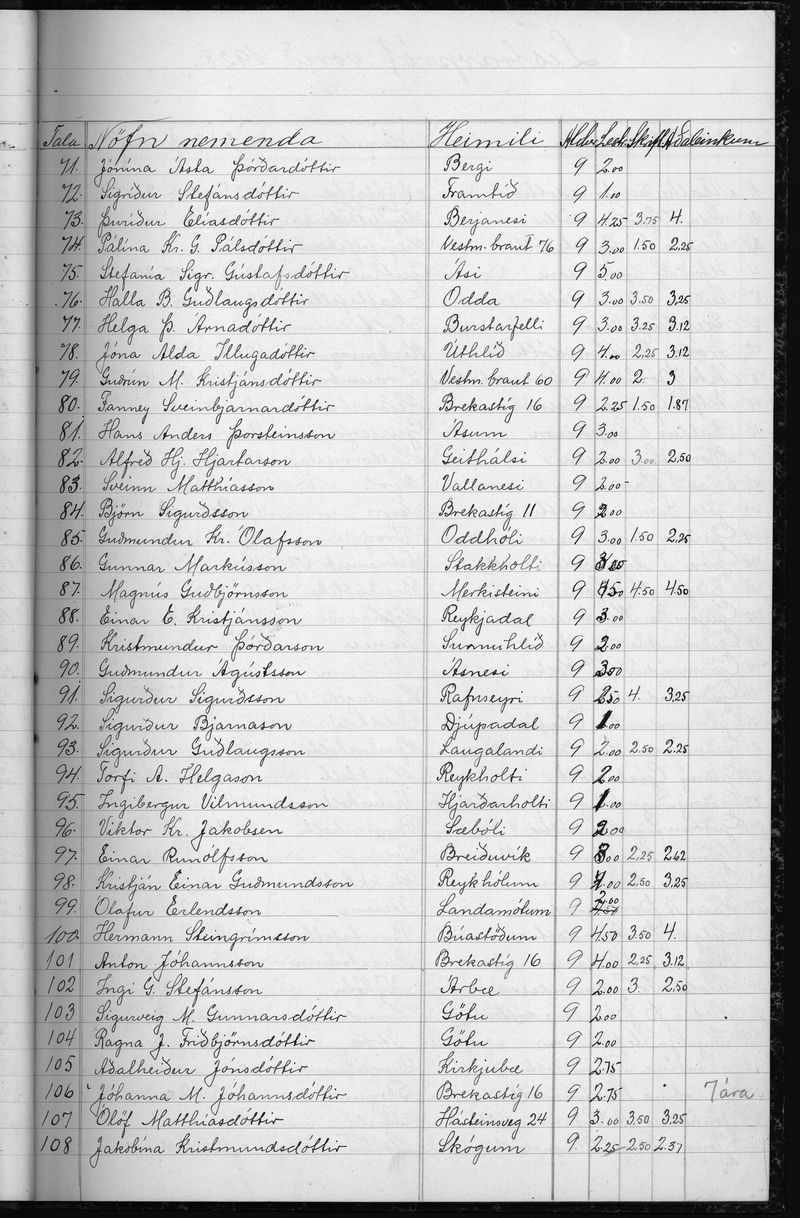 Tala Nöfn nemenda Heimili Aldur Lestr. Skrift Aðaleinkunn
71. Jónína Ásta Þórðardóttir Bergi 9 2.00
72. Sigríður Stefánsdóttir Framtíð 9 1.00
73. Þuríður Elíasdóttir Berjanesi 9 4.25 3.75 4.
74. Pálína Kr. G. Pálsdóttir Vestm. braut 76 9 3.00 1.50 2.25
75. Stefanía Sigr. Gústafsdóttir Ási 9 5.00
76. Halla B. Guðlaugsdóttir Odda 9 3.00 3.50 3.25
77. Helga Þ. Árnadóttir Burstarfelli 9 3.00 3.25 3.12
78. Jóna Alda Illugadóttir Úthlíð 9 4.00 2.25 3.12
79. Guðrún M. Kristjánsdóttir Vestm. braut 60 9 4.00 2. 3
80. Fanney Sveinbjarnardóttir Brekastíg 16 9 2.25 1.50 1.87
81. Hans Anders Þorsteinsson Ásum 9 3.00
82. Alfreð Hj. Hjartarson Geithálsi 9 2.00 3.00 2,50
83. Sveinn Matthíasson Vallanesi 9 2.00
84. Björn Sigurðsson Brekastíg 11 9 2.00
85. Guðmundur Kr. Ólafsson Oddhóli 9 3.00 1.50 2.25
86. Gunnar Markússon Stakkholti 9
87. Magnús Guðbjörnsson Merkisteini 9 4.50 4.50 4.50
88. Einar E. Kristjánsson Reykjadal 9 3.00
89. Kristmundur Þórðarson Sunnuhlíð 9 2.00
90. Guðmundur Ágústsson Ásnesi 9 3.00
91. Sigurður Sigurðsson Rafnseyri 9 2.50 4. 3.25
92. Sigurður Bjarnason Djúpadal 9 1.00
93. Sigurður Guðlaugsson Laugalandi 9 2.00 2.50 2.25
94. Torfi A. Helgason Reykholti 9 2.00
95. Ingibergur Vilmundsson Hjarðarholti 9 1.00
96. Viktor Kr. Jakobsen Sæbóli 9 2.00
97. Einar Runólfsson Breiðuvík 9 3.00 2.25 2.62
98. Kristján Einar Guðmundsson Reykhólum 9 4.00 2.50 3.25
99. Ólafur Erlendsson Landamótum 9 2.00
100 Hermann Steingrímsson Búastöðum 9 4.50 3.50 4.
101 Anton Jóhannsson Brekastíg 16 9 4.00 2.25 3.12
102 Ingi G. Stefánsson Árbæ 9 2.00 3. 2,50
103 Sigurveig M. Gunnarsdóttir Götu 9 2.00
104 Ragna J. Friðbjörnsdóttir Götu 9 2.00
105 Aðalheiður Jónsdóttir Kirkjubæ 9 2.75
106 Jóhanna M. Jóhannsdóttir Brekastíg 16 9 2.75 7 ára
107 Ólöf Matthíasdóttir Hásteinsveg 24 9 3.00 3.50 3.25
108 Jakobína Kristmundsdóttir Skógum 9. 2.25 2.50 2.37